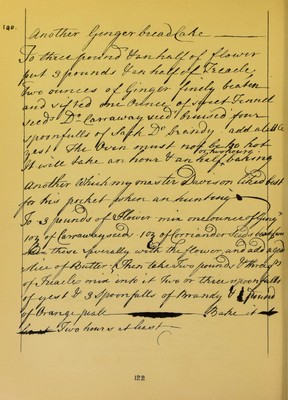 190.
Another Ginger bread Cake
To three pound & an half of flower
put 3 pounds & an half of Treacle
Two ounces of Ginger finely beaten
and sifted one Ounce of sweet Fennell
seeds Do Carraway seed bruised four
spoonfulls of Sack Do brandy add a little
yest The Oven must not be too hot
It will take an hour & an half baking
Another Which my master Davison liked best
for his pocket when an hunting
To 3 pounds of Flower mix one ounce of Ging
1 oz of Carraway seeds 1 oz of Corriander Seeds
these with the flower and add a
slice of Butter Then take Two pounds & three
of Treacle and mix it Two or three spoonfulls
of yest & 3 Spoonfulls of Brandy & 1 Pound
of Orange peall Bake it
Two hours at least
122